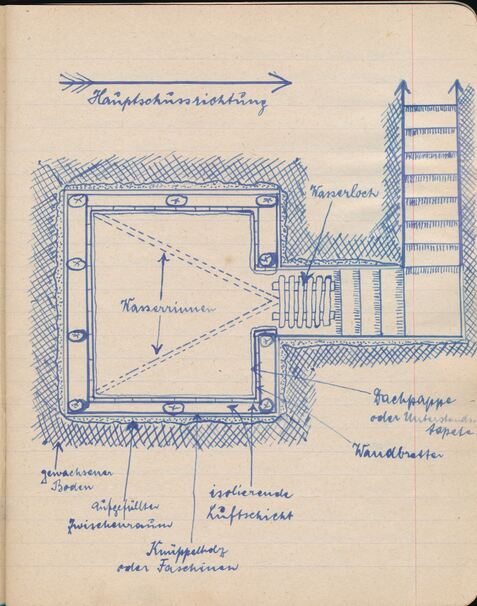 Hauptschussrichtung
Wasserloch
Wasserrinnen
Dachpappe
oder Unterstands
tapete
Wandbretter
gewachsener
Boden
aufgefüllter
Zwischenraum
isolierende
Luftschicht
Knüppelholz
oder Faschinen